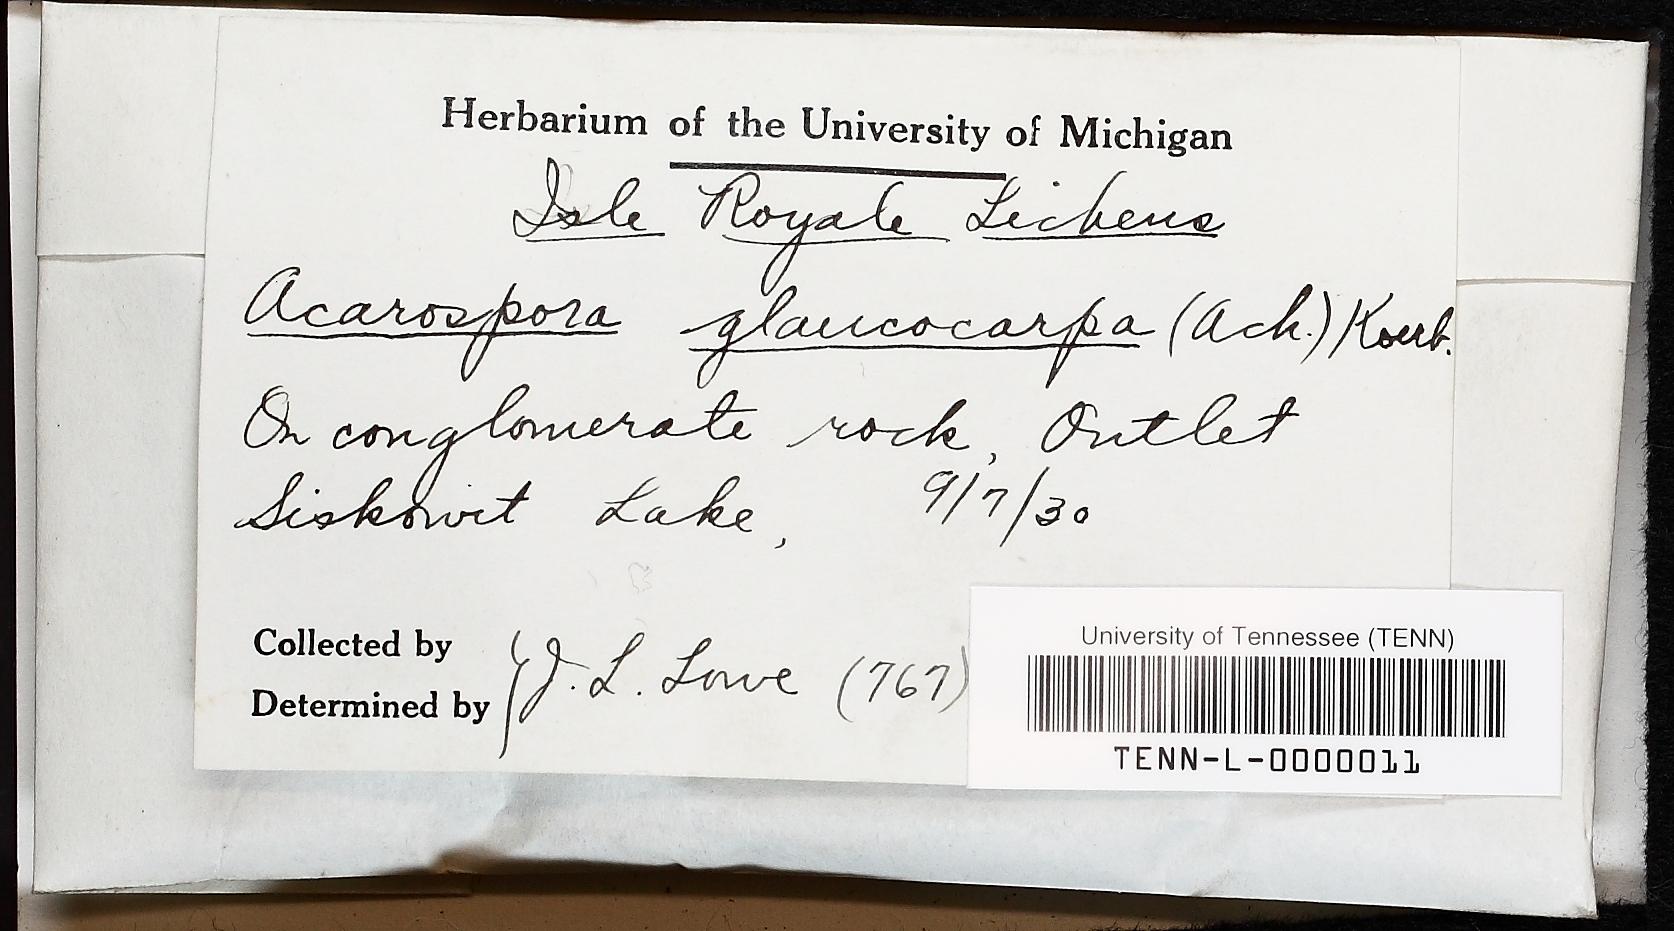 Herbarium of the University of Michigan
Isle Royale Lichens
Acarospora glaucocarpa (Ach.) Koerb.
On conglomerate rock, Outlet
Siskowit Lake, 9/7/30
Collected by
Determined by J. L. Lowe (767)
University of Tennessee (TENN)
TENN-L-0000011